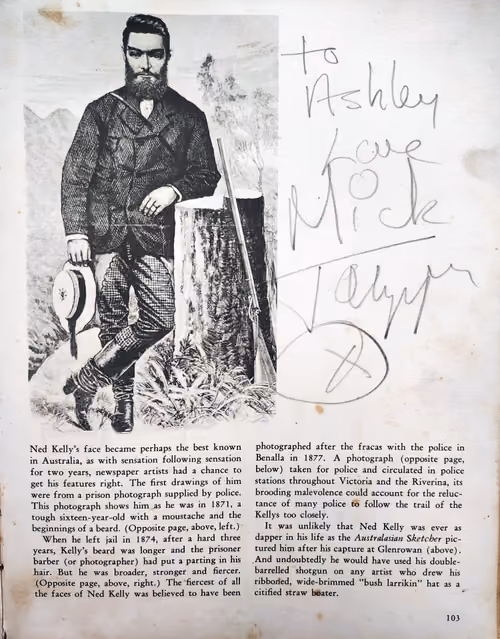 to
Ashley
Love
Mick
Ned Kelly's face became perhaps the best known
in Australia, as with sensation following sensation
for two years, newspaper artists had a chance to
get his features right. The first drawings of him
were from a prison photograph supplied by police.
This photograph shows him as he was in 1871, a
tough sixteen-year-old with a moustache and the
beginnings of a beard. (Opposite page, above, left.)
When he left jail in 1874, after a hard three
years, Kelly's beard was longer and the prisoner
barber (or photographer) had put a parting in his
hair. But he was broader, stronger and fiercer.
(Opposite page, above, right.) The fiercest of all
the faces of Ned Kelly was believed to have been
photographed after the fracas with the police in
Benalla in 1877. A photograph (opposite page,
below) taken for police and circulated in police
stations throughout Victoria and the Riverina, its
brooding malevolence could account for the reluc-
tance of many police to follow the trail of the
Kellys too closely.
It was unlikely that Ned Kelly was ever as
dapper in his life as the Australasian Sketcher pic-
tured him after his capture at Glenrowan (above).
And undoubtedly he would have used his double-
barrelled shotgun on any artist who drew his
ribboned, wide-brimmed "bush larrikin" hat as a
citified straw boater.
103